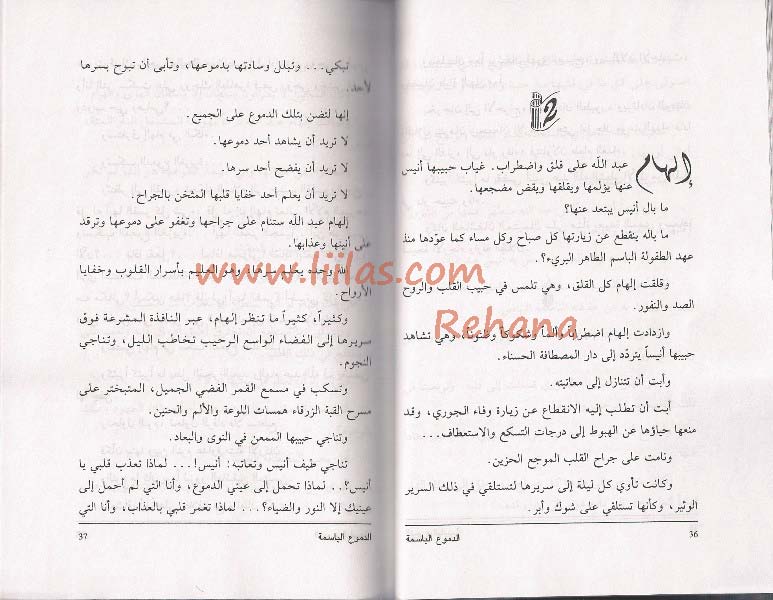 2
إلهام عبد الله على قلق واضطراب. غياب حبيبها أنيس
عنها يؤلمها ويقلقها ويقض مضجعها.
ما بال أنيس يبتعد عنها؟
ما باله ينقطع عن زيارتها كل صباح وكل مساء كما عوّدها منذ
عهد الطفولة الباسم الطاهر البريء؟.
وقلقت إلهام كل القلق، وهي تلمس في حبيب القلب والروح
الصد والنفور.
وازدادت إلهام اضطراباً وألماً وشكوكاً وظنوناً، وهي تشاهد
حبيبها أنيساً يتردّد إلى دار المصطافة الحسناء.
وأبت أن تتنازل إلى معاتبته.
أبت أن تطلب إليه الانقطاع عن زيارة وفاء الجوري، وقد
منعها حياؤها عن الهبوط إلى درجات التسكع والاستعطاف...
ونامت على جراح القلب الموجع الحزين.
وكانت تأوي كل ليلة إلى سريرها لتستلقي في ذلك السرير
الوثير، وكأنها تستلقي على شوك وأبر.
الدموع الباسمة
36
تبكي... وتبلل وسادتها بدموعها، وتأبى أن تبوح بسرها
لأحد.
إنها لتضن بتلك الدموع على الجميع.
لا تريد أن يشاهد أحد دموعها.
لا تريد أن يفضح أحد سرها.
لا تريد أن يعلم أحد خفايا قلبها المثخن بالجراح.
إلهام عبد الله ستنام على جراحها وتغفو على دموعها وترقد
على أنينها وعذابها.
الله وحده يعلم سرها، وهو العليم بأسرار القلوب وخفايا
الأرواح.
وكثيراً، كثيراً ما تنظر إلهام، عبر النافذة المشرعة فوق
سريرها إلى الفضاء الواسع الرحيب تخاطب الليل، وتناجي
النجوم.
وتسكب في مسمع القمر الفضي الجميل، المتبختر على
مسرح القبة الزرقاء همسات اللوعة والألم والحنين.
وتناجي حبيبها الممعن في النوى والبعاد.
تناجي طيف أنيس وتعاتبه: أنيس!... لماذا تعذب قلبي يا
أنيس؟.. لماذا تحمل إلى عيني الدموع، وأنا التي لم أحمل إلى
عينيك إلا النور والضياء؟... لماذا تغمر قلبي بالعذاب، وأنا التي
الدموع الباسمة
37
www.liilas.com
Rehana